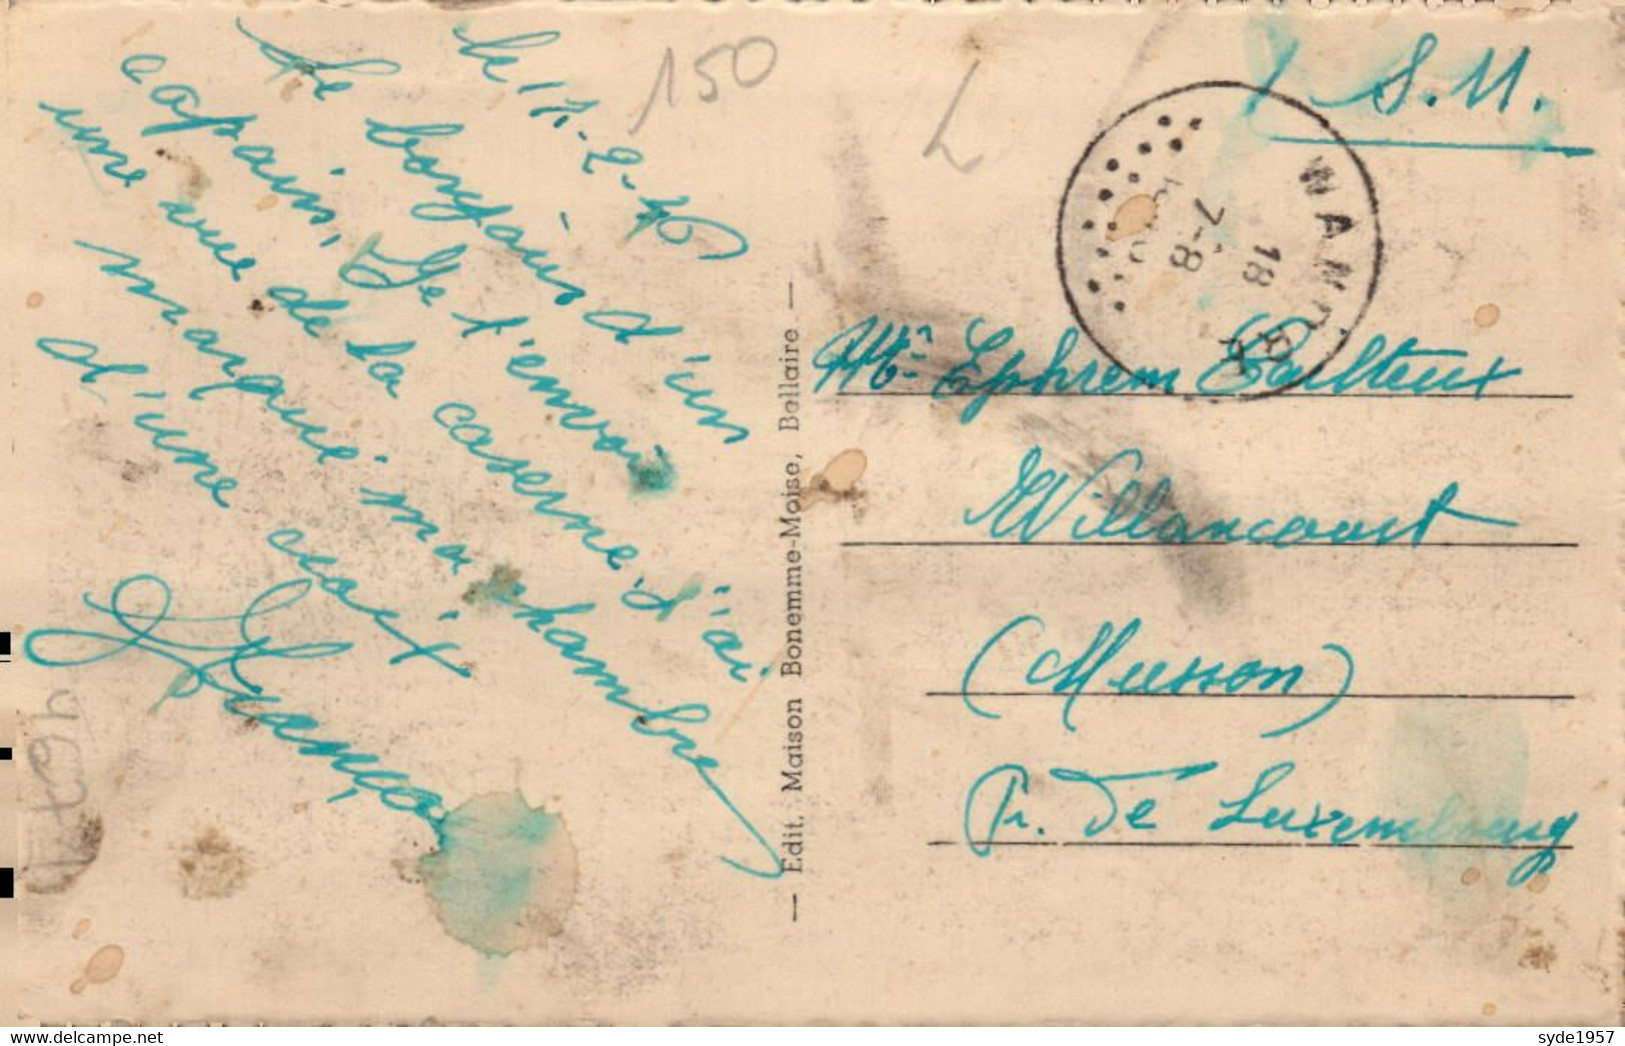 le 17-2-40
Le bonjour d'un
copain, Je t'envoi
une vue de la caserne, j'ai
marqué ma chambre
d'une croix
150
L
S.M.
WANDRE
18
7-8
Mr Ephrem Pailteux
Willancourt
(Musson)
Pr. De Luxembourg
— Edit. Maison Bonemme-Moise, Ballaire —
syde1957